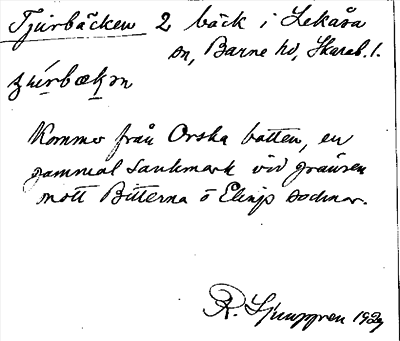 Tjurbäcken 2 bäck i Lekåsa
sn, Barne hd, Skarab. l.
Kommer från Orska botten, en
gammal sankmark vid gränsen
mott Bitterna o Elings socknar.
R. Ljunggren 1927